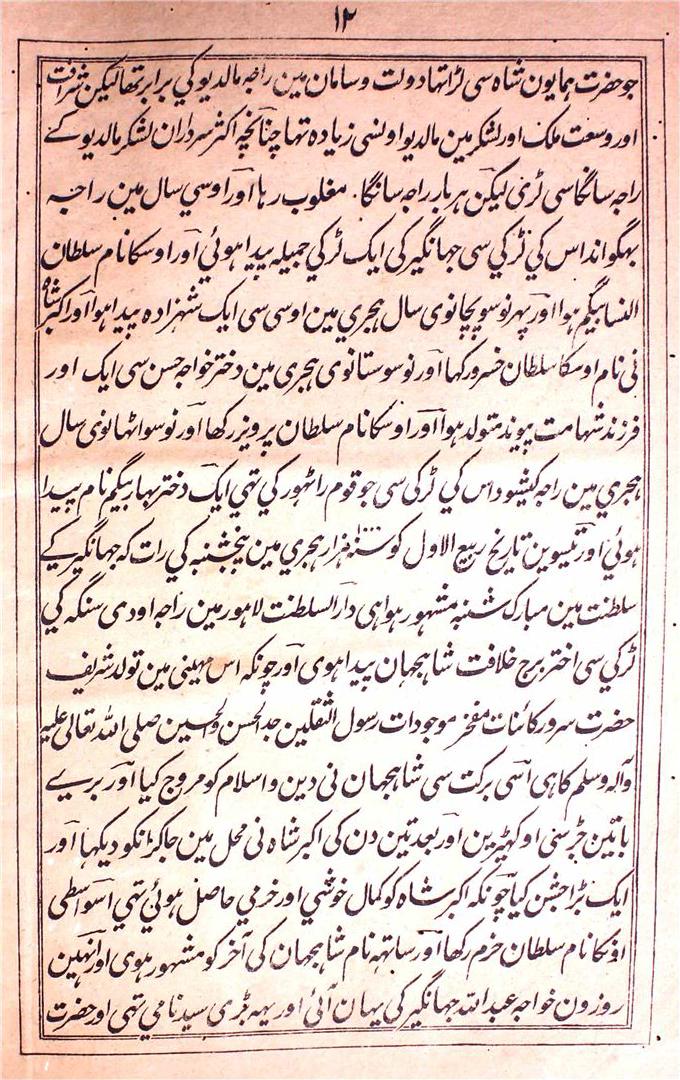 ١٢
جو حضرت همایون شاه سی لڑا تها دولت و سامان مین راجه مالدیو کي برابر تها لیکن شرافت
اور وسعت ملک اور لشکر مین مالدیو اوسی زیاده تها چنانچه اکثر سرداران لشکر مالدیو کے
راجه سانگا سی لڑی لیکن هر بار راجه سانگا۔ مغلوب رها اور اوسي سال مین راجه
بهگوانداس کي لڑکي سی جهانگیر کی ایک لڑکي جمیله پیدا هوئي اور اوسکا نام سلطان
النسا بیگم هوا اور پهر نوسو پچانوی سال هجري مین اوسی سی ایک شهزاده پیدا هوا اور اکبر شاه
نی نام اوسکا سلطان خسرو رکها اور نوسو ستانوی هجری مین دختر خواجه حسن سی ایک اور
فرزند شهامت پیوند متولد هوا اور اوسکا نام سلطان پرویز رکها اور نوسو اٹهانوی سال
هجري مین راجه کیشوداس کي لڑکي سی جو قوم راٹهور کي تهي ایک دختر بهار بیگم نام پیدا
هوئي اور تیسوین تاریخ ربیع الاول کو سنه ١٠٠٠ هزار هجري مین پنجشنبه کي رات که جهانگیر کے
سلطنت مین مبارک شنبه مشهور هوا هی دار السلطنت لاهور مین راجه اودی سنگه کي
لڑکي سی اختر برج خلافت شاهجهان پیدا هوی اور چونکه اس مهینی مین تولد شریف
حضرت سرور کائنات مفخر موجودات رسول الثقلین جد الحسن و الحسین صلی الله تعالی علیه
وآله وسلم کا هی اسی برکت سی شاهجهان نی دین و اسلام کو مروج کیا اور بریے
باتین جڑ سنی اوکهیڑین اور بعد تین دن کی اکبر شاه نی محل مین جاکر انکو دیکها اور
ایک بڑا جشن کیا چونکه اکبر شاه کو کمال خوشي اور خرمي حاصل هوئي تهي اسواسطی
اونکا نام سلطان خرم رکها اور ساتهه نام شاهجهان کی آخر کو مشهور هوی اور انهین
روزون خواجه عبد الله جهانگیر کی یهان آئی اور یهه بڑی سید نامي تهی اور حضرت